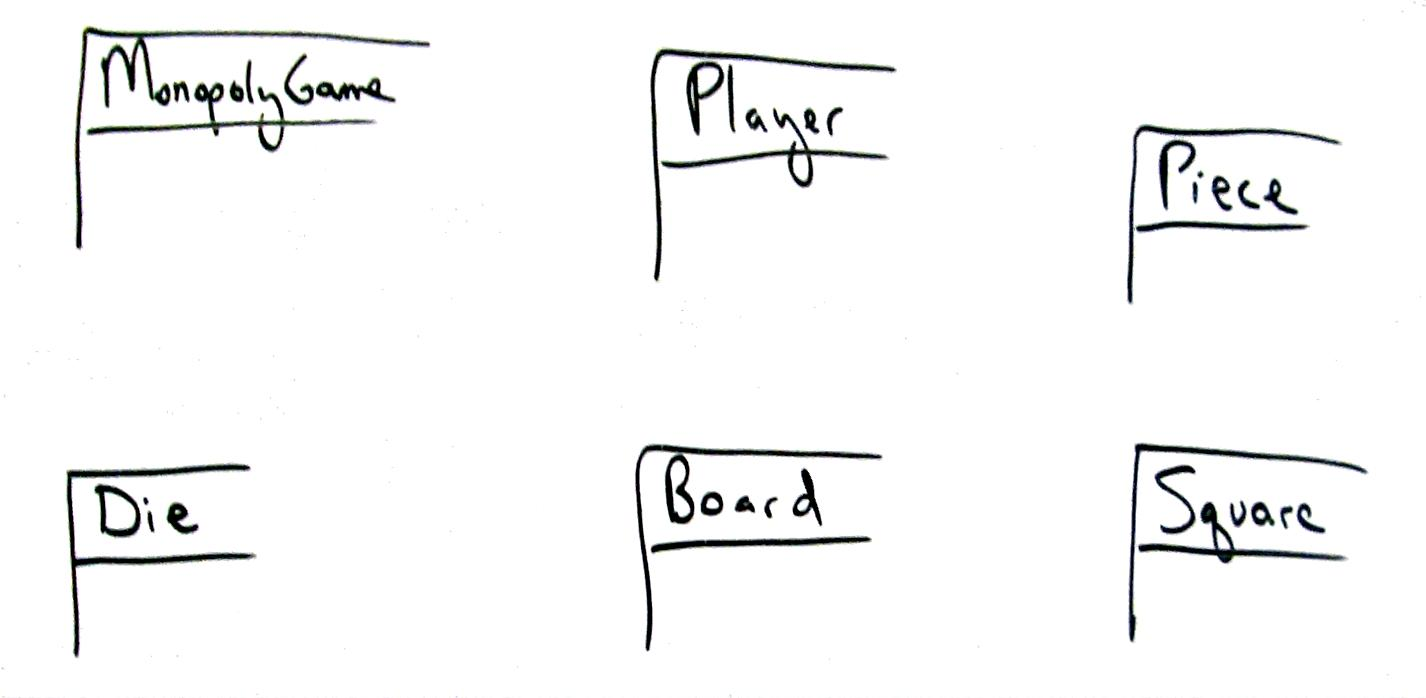 MonopolyGame
Player
Piece
Die
Board
Square